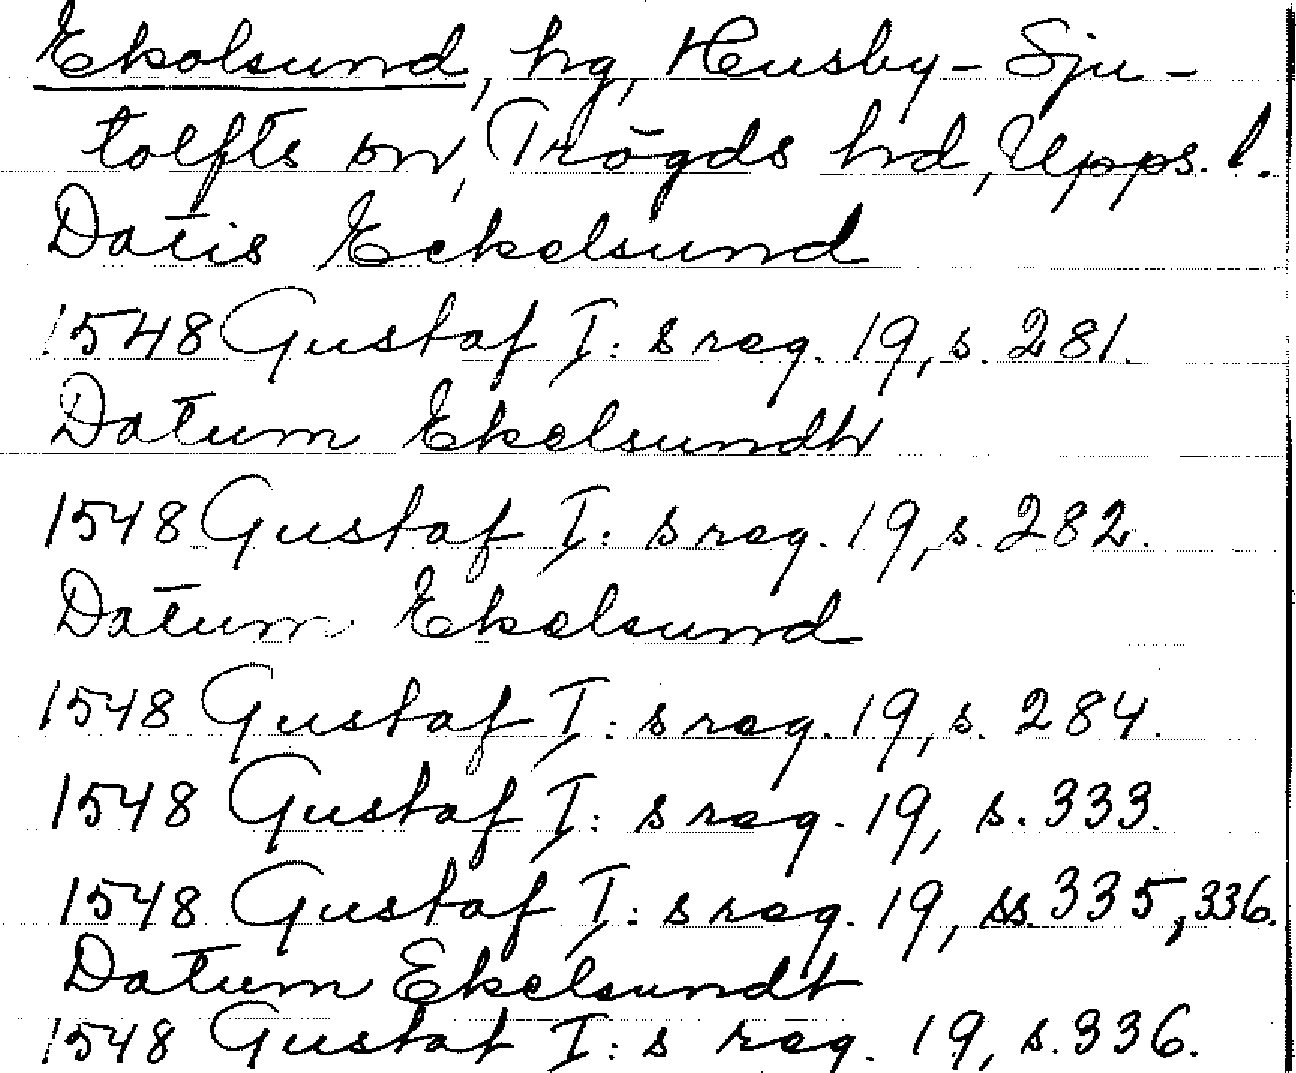 Ekolsund, hg, Husby-Sju-
tolfts sn, Trögds hd, Upps. l.
Datis Eckelsund
1548 Gustaf I: s reg. 19, s. 281.
Datum Ekelsundh
1548 Gustaf I: s reg. 19, s. 282.
Datum Ekelsund
1548 Gustaf I: s reg. 19, s. 284.
1548 Gustaf I: s reg. 19, s. 333.
1548 Gustaf I: s reg. 19, ss. 335, 336.
Datum Ekelsundt
1548 Gustaf I: s reg. 19, s. 336.